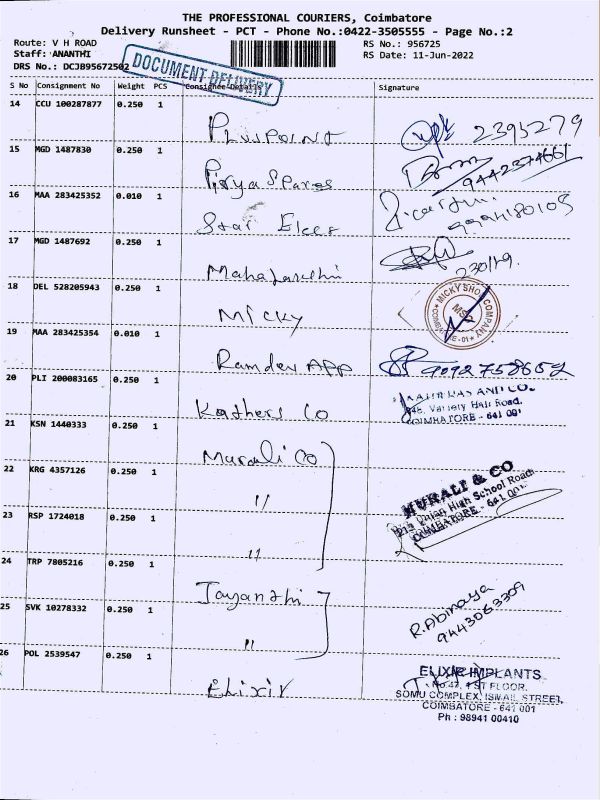 THE PROFESSIONAL COURIERS, Coimbatore
Delivery Runsheet - PCT - Phone No.:0422-3505555 - Page No.:2
Route: V H ROAD
RS No.: 956725
Staff: ANANTHI
RS Date: 11-Jun-2022
DRS No.: DCJB95672502
DOCUMENT DELIVERY
S No Consignment No Weight PCS Consignee Details Signature
14 CCU 100287877 0.250 1
Pluspoint 2395279
15 MGD 1487830 0.250 1
Pirya Spares 9442374661
16 MAA 283425352 0.010 1
Star Elect
17 MGD 1487692 0.250 1
230119.
18 DEL 528205943 0.250 1
Micky MICKY SHOE COMPANY
19 MAA 283425354 0.010 1
Ramdev APP
20 PLI 200083165 0.250 1
Kathers Co AND CO.
Variety Hall Road,
COIMBATORE - 641 001
21 KSN 1440333 0.250 1
Murali Co
22 KRG 4357126 0.250 1
" MURALI & CO
High School Road
COIMBATORE - 641 001.
23 RSP 1724018 0.250 1
"
24 TRP 7805216 0.250 1
Jayanthi R.Abinaya
9443063309
25 SVK 10278332 0.250 1
"
26 POL 2539547 0.250 1
Elixir ELIXIR IMPLANTS
No.42, 1 ST FLOOR,
SOMU COMPLEX, ISMAIL STREET,
COIMBATORE - 641 001
Ph : 98941 00410